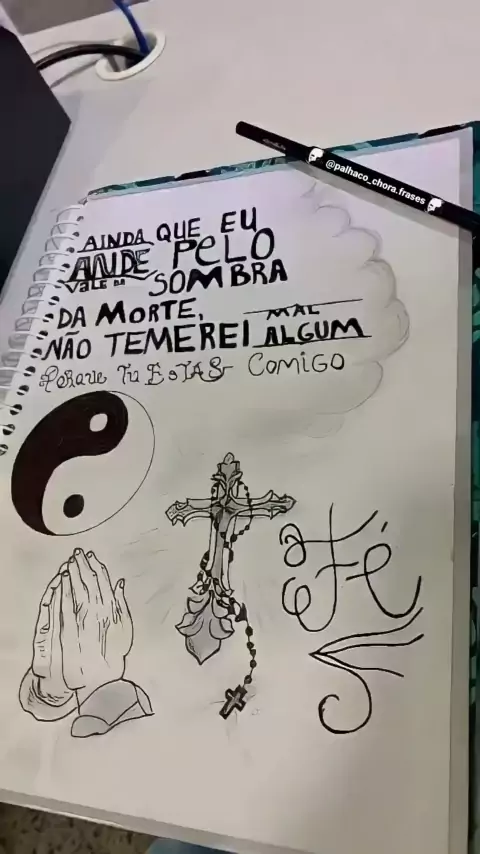 @palhaco_chora.frases
AINDA QUE EU
ANDE PELO
VALE DA SOMBRA
DA MORTE,
NÃO TEMEREI MAL ALGUM
PORQUE TU ESTÁS COMIGO
Fé